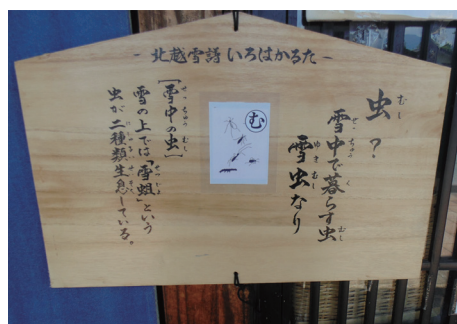 - 北越雪譜 いろはかるた -
虫?
雪中で暮らす虫
雪虫なり
む
[雪中の虫]
雪の上では「雪蛆」という
虫が二種類生息している。